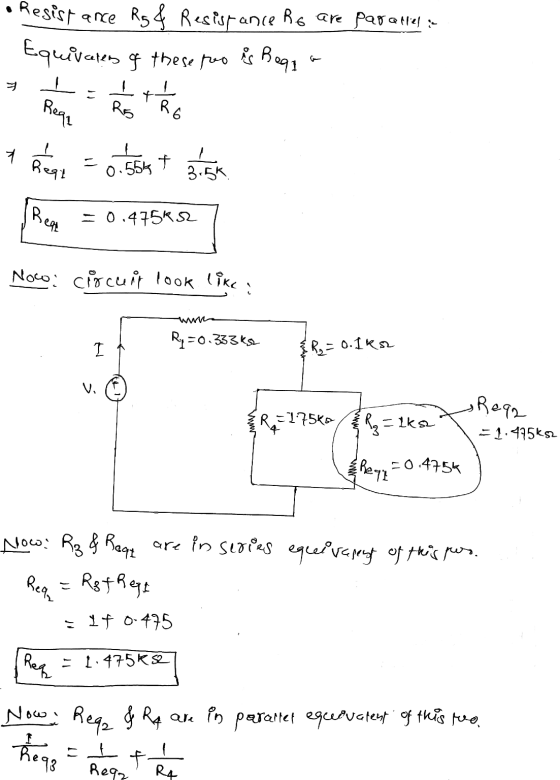 • Resistance R5 & Resistance R6 are parallel :-
Equivalent of these two is Req1
⇒ 1/Req1 = 1/R5 + 1/R6
⇒ 1/Req1 = 1/0.55k + 1/3.5k
Req1 = 0.475KΩ
Now: circuit look like :
R1=0.333kΩ
I
R2= 0.1KΩ
V.
R4=175kΩ
R3=1kΩ
Req2
=1.475KΩ
Req1=0.475k
Now: R3 & Req1 are in series equivalent of this two.
Req2 = R3+Req1
= 1+0.475
Req2 = 1.475KΩ
Now: Req2 & R4 are in parallel equivalent of this two.
1/Req3 = 1/Req2 + 1/R4